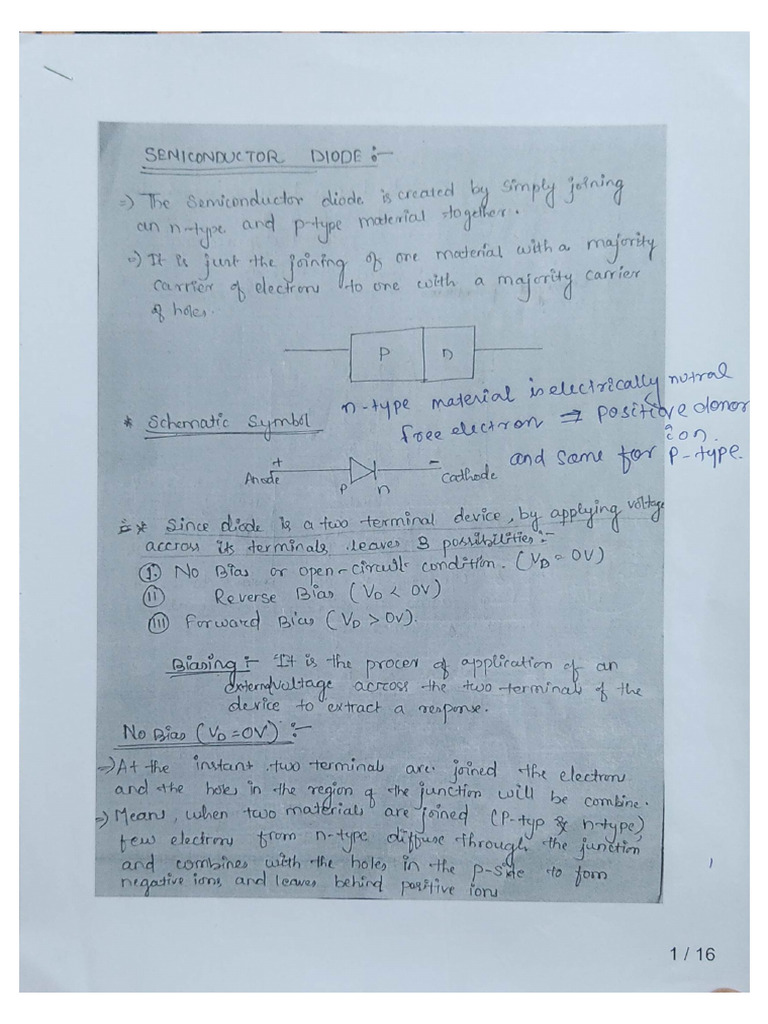 SEMICONDUCTOR DIODE :-
=) The Semiconductor diode is created by simply joining
an n-type and p-type material together.
=) It is just the joining of one material with a majority
carrier of electron to one with a majority carrier
of holes.
P n
n-type material is electrically nutral
* Schematic Symbol
free electron => positive donor
ion.
and same for p-type.
+ -
Anode Cathode
P n
* Since diode is a two terminal device, by applying voltage
accross its terminals leaves 3 possibilities:-
(i) No Bias or open-circuit condition. (VD = 0V)
(ii) Reverse Bias (VD < 0V)
(iii) Forward Bias (VD > 0V).
Biasing :- It is the proces of application of an
external voltage across the two terminal of the
device to extract a response.
No Bias (VD = 0V) :-
=) At the instant two terminal are joined the electron
and the holes in the region of the junction will be combine.
=) Means, when two materials are joined (P-typ & n-type)
few electron from n-type diffuse through the junction
and combines with the holes in the p-side to fom
negative ions, and leaves behind positive ions
1 / 16